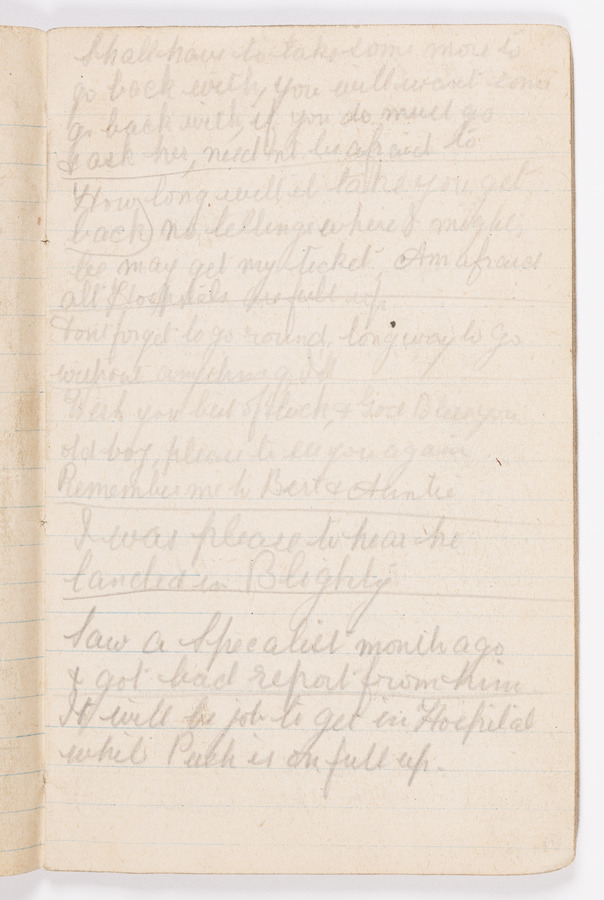 Shall have to take some more to
go back with, you will want some
go back with if you do must go
& ask her, need not be afraid to
How long will it take you get
back) no telling where I might
be may get my ticket Am afraid
all Hospitals are full up
Dont forget to go round, long way to go
without anything
Wish you best of luck & God Bless you
old boy, please to see you again
Remember me to Bert & Auntie
I was please to hear he
landed in Blighty
Saw a Specalist month ago
& got bad report from him
It will be job to get in Hospital
whil Push is on full up.